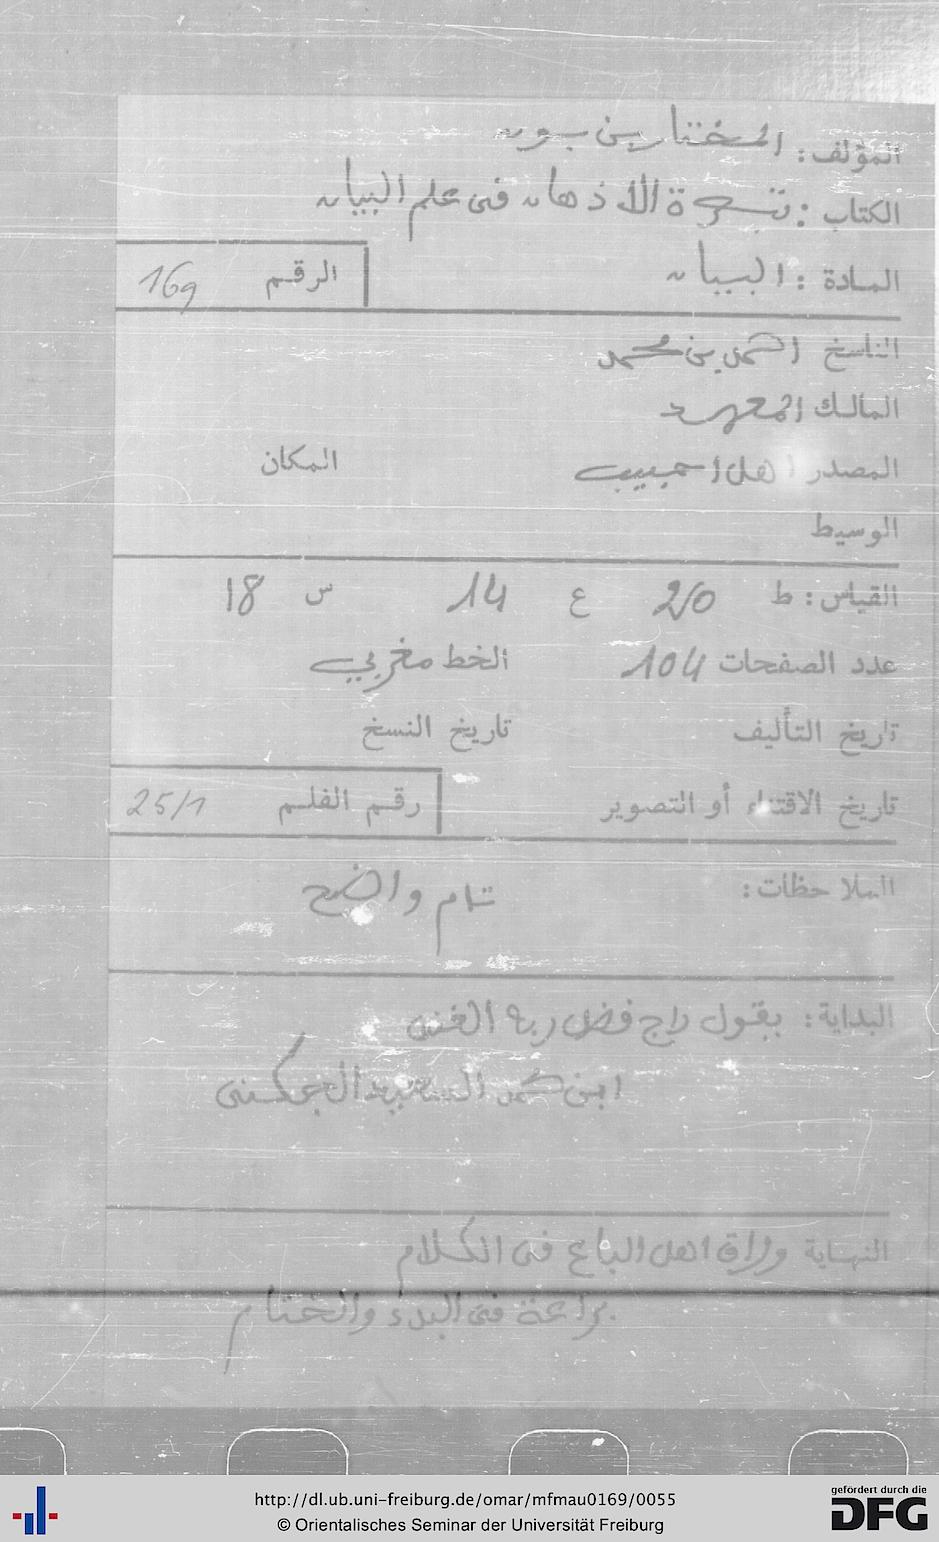 المؤلف: المختار بن بونه
الكتاب: تبصرة الأذهان فى علم البيان
المادة: البيان
الرقم 169
الناسخ احمد بن محمد
المالك المعهد
المصدر اهل احبيب المكان
الوسيط
القياس: ط 20 ع 14 س 18
عدد الصفحات 104 الخط مغربي
تاريخ التأليف تاريخ النسخ
تاريخ الاقتناء أو التصوير رقم الفلم 25/1
الملاحظات: تام واضح
البداية: يقول راج فضل ربه الغنى
ابن السعيد الجكنى
النهاية وراق اهل الباع فى الكلام
براعة فى البدء والختام
http://dl.ub.uni-freiburg.de/omar/mfmau0169/0055
© Orientalisches Seminar der Universität Freiburg
gefördert durch die
DFG